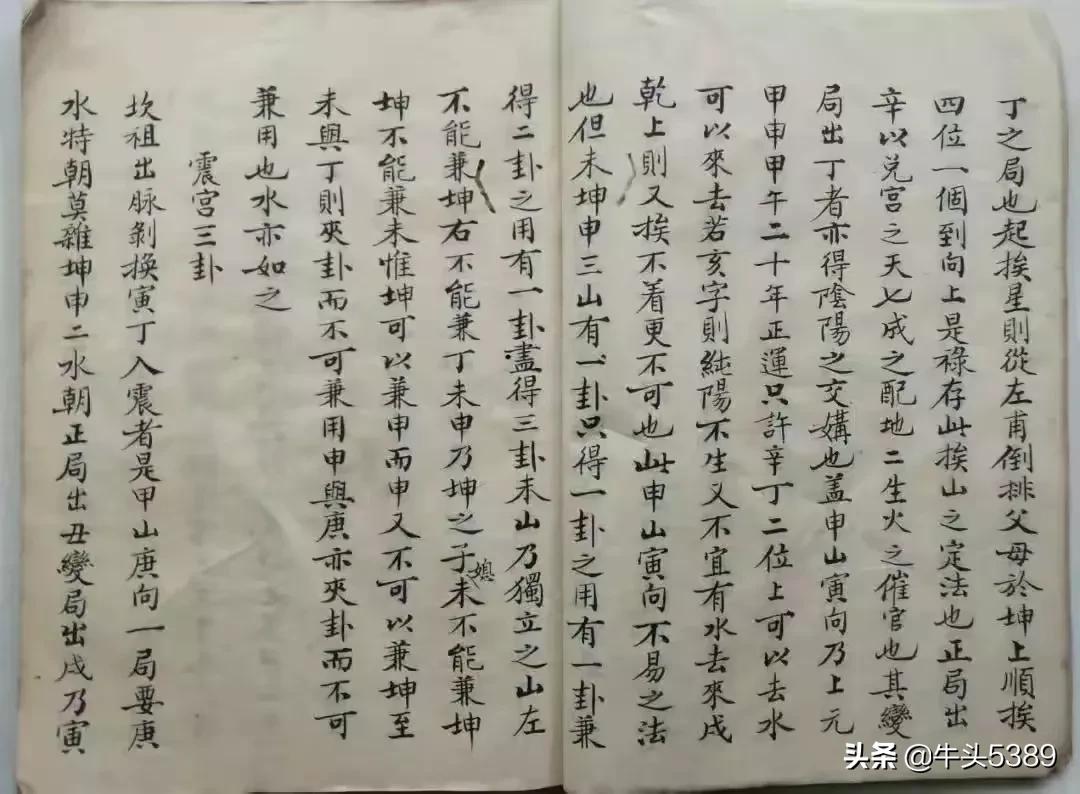 丁之局也起挨星則從左甫倒排父母於坤上順挨
四位一個到向上是祿存此挨山之定法也正局出
辛以兌宮之天七成之配地二生火之催官也其變
局出丁者亦得陰陽之交媾也蓋申山寅向乃上元
甲申甲午二十年正運只許辛丁二位上可以去水
可以來去若亥字則純陽不生又不宜有水去來戌
乾上則又挨不着更不可也此申山寅向不易之法
也但未坤申三山有一卦只得一卦之用有一卦兼
得二卦之用有一卦盡得三卦未山乃獨立之山左
不能兼坤右不能兼丁未申乃坤之子媳未不能兼坤
坤不能兼未惟坤可以兼申而申又不可以兼坤至
未與丁則夾卦而不可兼用申與庚亦夾卦而不可
兼用也水亦如之
震宮三卦
坎祖出脉剝換寅丁入震者是甲山庚向一局要庚
水特朝莫雜坤申二水朝正局出丑變局出戌乃寅
头条 @牛头5389